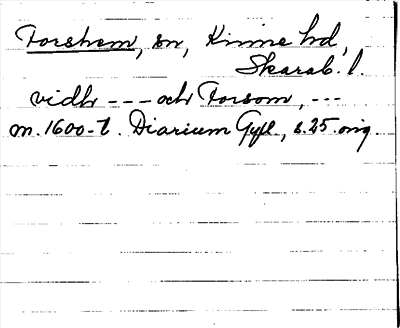 Forshem, sn, Kinne hd,
Skarab. l.
vidh --- och Forsom, ---
m. 1600-t. Diarium Gyll., s. 25. orig.